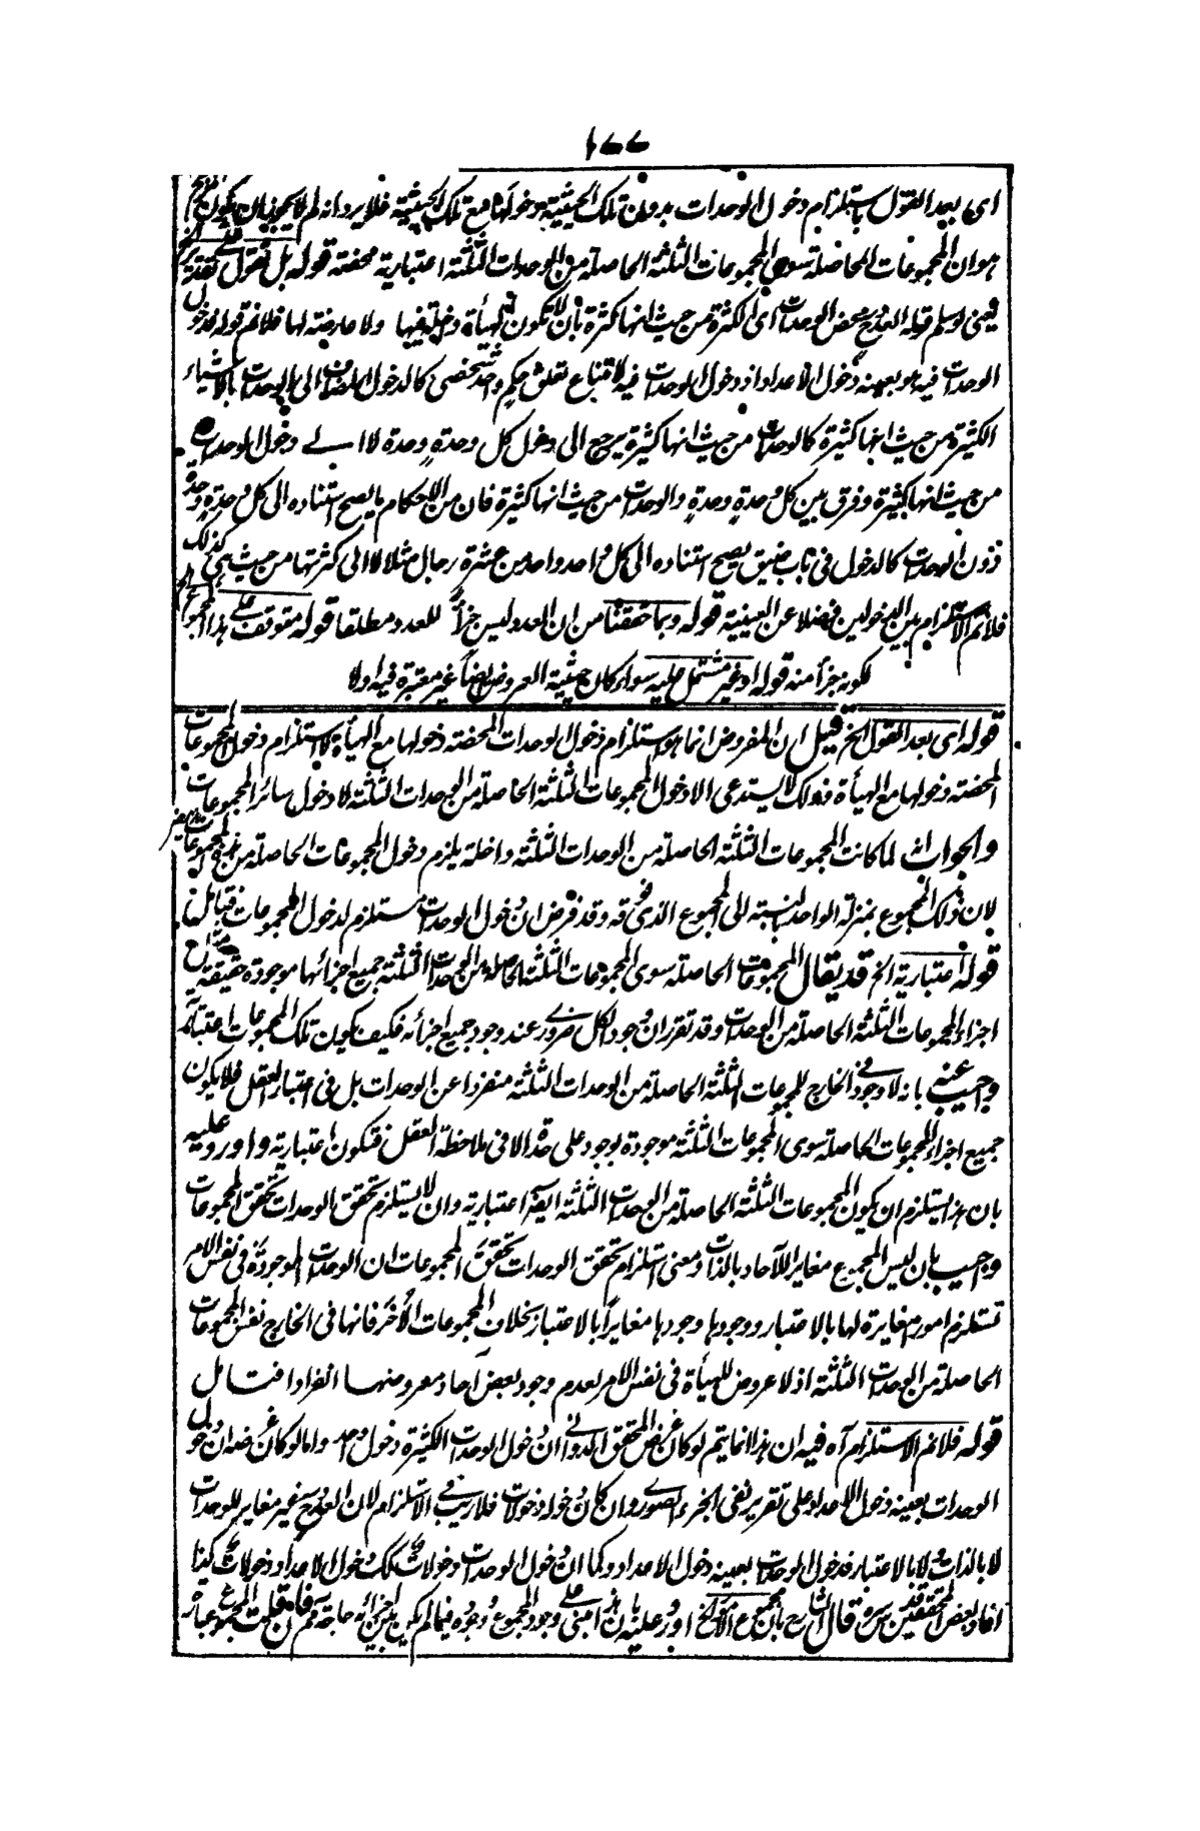 ١٧٧
اى بعد القول باستلزام دخول الوحدات بدون تلك الحيثية دخولها مع تلك الحيثية فلا يرد انه لم لا يجوز ان يكون
هو ان المجموعات الحاصلة سوى المجموعات الثلثة الحاصلة من الوحدات الثلثة اعتبارية محضة قوله بل نقول
يعنى لو سلم قوله العدد محض الوحدات اى الكثرة من حيث انها كثرة بأن لا تكون الهيأة داخلة فيها ولا عارضة لها فلا نم قوله فدخول
الوحدات فيه هو بعينه دخول الاعداد اذ دخول الوحدات فيه لامتناع تعلق حكم واحد شخصى كالدخول المضاف الى الوحدات بالاشياء
الكثيرة من حيث انها كثيرة كالوحدات من حيث انها كثيرة يرجع الى دخول كل وحدةٍ وحدة لا الى دخول الوحدات
من حيث انها كثيرة وفرق بين كل وحدةٍ وحدةٍ والوحدات من حيث انها كثيرة فان من الاحكام ما يصح استناده الى كل وحدةٍ وحدة
دون الوحدات كالدخول فى باب ضيق يصح استناده الى كل واحد واحد من عشرة رجال مثلا لا الى كثرتها من حيث هى كذلك
فلا نم الاستلزام بين الدخولين فضلا عن العينية قوله وبما حققنا من ان العدد ليس جزأً للعدد مطلقا قوله متوقف على هذا
لكونه جزأ منه قوله او غير مشتمل عليه سواء كان حيثية العروض ايضاً غير معتبرة فيه اولا
قوله اى بعد القول الخ قيل ان المفروض انما هو استلزام دخول الوحدات المحضة دخولها مع الهيأة لا استلزام دخول المجموعات
المحضة دخولها مع الهيأة وذلك لا يستدعى الا دخول المجموعات الثلثة الحاصلة من الوحدات الثلثة لا دخول سائر المجموعات
والجواب انه لما كانت المجموعات الثلثة الحاصلة من الوحدات الثلثة داخلة يلزم دخول المجموعات الحاصلة من هذه المجموعات
لان ذلك المجموع بمنزلة الواحد بالنسبة الى المجموع الذى فوقه وقد فرض ان دخول الوحدات مستلزم لدخول المجموعات فتأمل
قوله اعتبارية الخ قد يقال المجموعات الحاصلة سوى المجموعات الثلثة الحاصلة من الوحدات الثلثة جميع اجزائها موجودة حقيقة
اجزاء المجموعات الثلثة الحاصلة من الوحدات وقد تقرر ان وجود الكل ضرورى عند وجود جميع اجزائه فكيف يكون تلك المجموعات اعتبارية
واجيب عنه بانه لا وجود فى الخارج للمجموعات الثلثة الحاصلة من الوحدات الثلثة منفردا عن الوحدات بل فى اعتبار العقل فلا يكون
جميع اجزاء المجموعات الحاصلة سوى المجموعات الثلثة موجودة بوجود على حدة الا فى ملاحظة العقل فتكون اعتبارية واورد عليه
بان هذا يستلزم ان يكون المجموعات الثلثة الحاصلة من الوحدات الثلثة ايضاً اعتبارية وان لا يستلزم تحقق الوحدات تحقق المجموعات
واجيب بان ليس المجموع مغايراً للآحاد بالذات ومعنى استلزام تحقق الوحدات تحقق المجموعات ان الوحدات الموجودة فى نفس الامر
تستلزم امورا مغايرة لها بالاعتبار ووجودها وجودها مغايراً بالاعتبار بخلاف المجموعات الاُخَر فانها فى الخارج نفس المجموعات
الحاصلة من الوحدات الثلثة اذ لا عروض للهيأة فى نفس الامر لعدم وجود بعض آحاد معروضها انفرادا فتأمل
قوله فلا نم الاستلزام آه فيه ان هذا انما يتم لو كان غرض المحقق الدوانى ان دخول الوحدات الكثيرة دخول واحد واما لو كان غرضه ان دخول
الوحدات بعينه دخول الاعداد على تقرير نفى الجزء الصورى وان كان دخولها دخولات فلا ريب فى الاستلزام لان العدد ح غير مغاير للوحدات
لا بالذات ولا بالاعتبار فدخول الوحدات بعينه دخول الاعداد وكما ان دخول الوحدات دخولات كذلك دخول الاعداد دخولات كذا
افاد بعض المحققين قدس سره قال الشارح بان مجموع الخ اورد عليه بان هذا مبنى على وجود المجموع وجوده فيما لم يكن بين اجزائه حاجة مم فان قلت